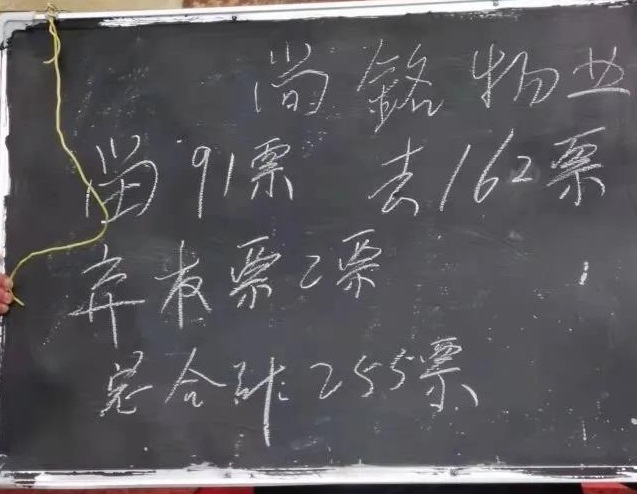 尚铭物业
留91票 去162票
弃权票2票
总合计255票